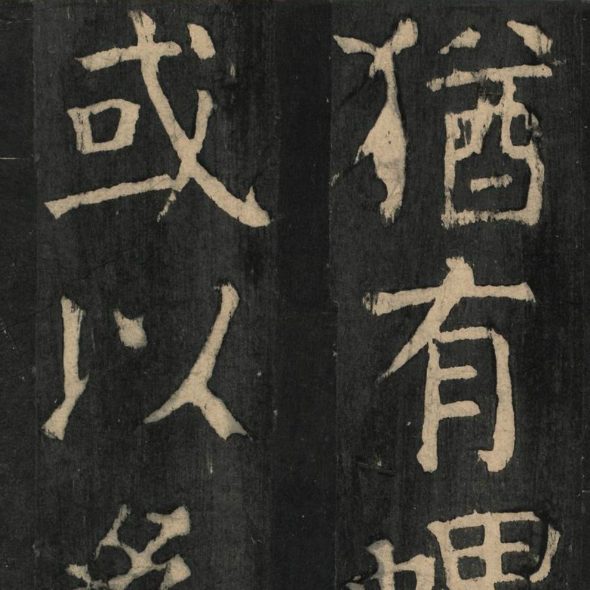 猶有
或以